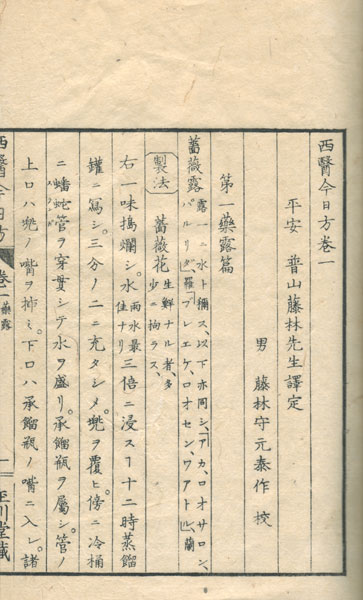 西醫今日方卷一
平安 普山藤林先生譯定
男 藤林守元泰作 校
第一藥露篇
薔薇露 露一ニ水ト稱ス、以下亦同シ、アカ、ロオサロン、
パルリダ、羅 ブレエケ、ロオセン、ワアトル、蘭
製法 薔薇花 生鮮ナル者、多少ニ拘ラス、
右一味搗爛シ。水 雨水最佳ナリ 三倍ニ浸スヿ十二時蒸餾
罐ニ寫シ。三分ノ二ニ充タシメ。兜ヲ覆ヒ。傍ニ冷桶
ニ蟠蛇管ヲ穿貫シテ水ヲ盛リ。承餾瓶ヲ屬シ。管ノ
上口ハ兜ノ嘴ヲ挿ミ。下口ハ承餾瓶ノ嘴ニ入レ。諸
西醫今日方 卷一 藥露 一